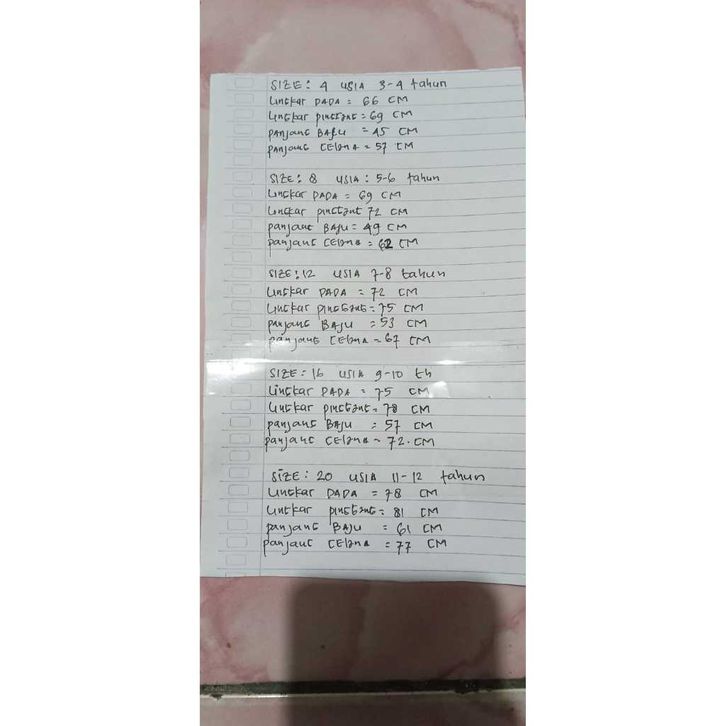 SIZE: 4 USIA 3-4 tahun
Lingkar DADA = 66 CM
Lingkar pinggang = 69 CM
panjang BAJU = 45 CM
panjang CELana = 57 CM
SIZE: 8 USIA: 5-6 tahun
Lingkar DADA = 69 CM
Lingkar pinggang 72 CM
panjang BAJU = 49 CM
panjang CELana = 62 CM
SIZE: 12 USIA 7-8 tahun
Lingkar DADA = 72 CM
Lingkar pinggang = 75 CM
panjang BAJU = 53 CM
panjang CELana = 67 CM
SIZE: 16 USIA 9-10 th
Lingkar DADA = 75 CM
Lingkar pinggang = 78 CM
panjang BAJU = 57 CM
panjang CELana = 72. CM
SIZE: 20 USIA 11-12 tahun
Lingkar DADA = 78 CM
Lingkar pinggang = 81 CM
panjang BAJU = 61 CM
panjang CELana = 77 CM